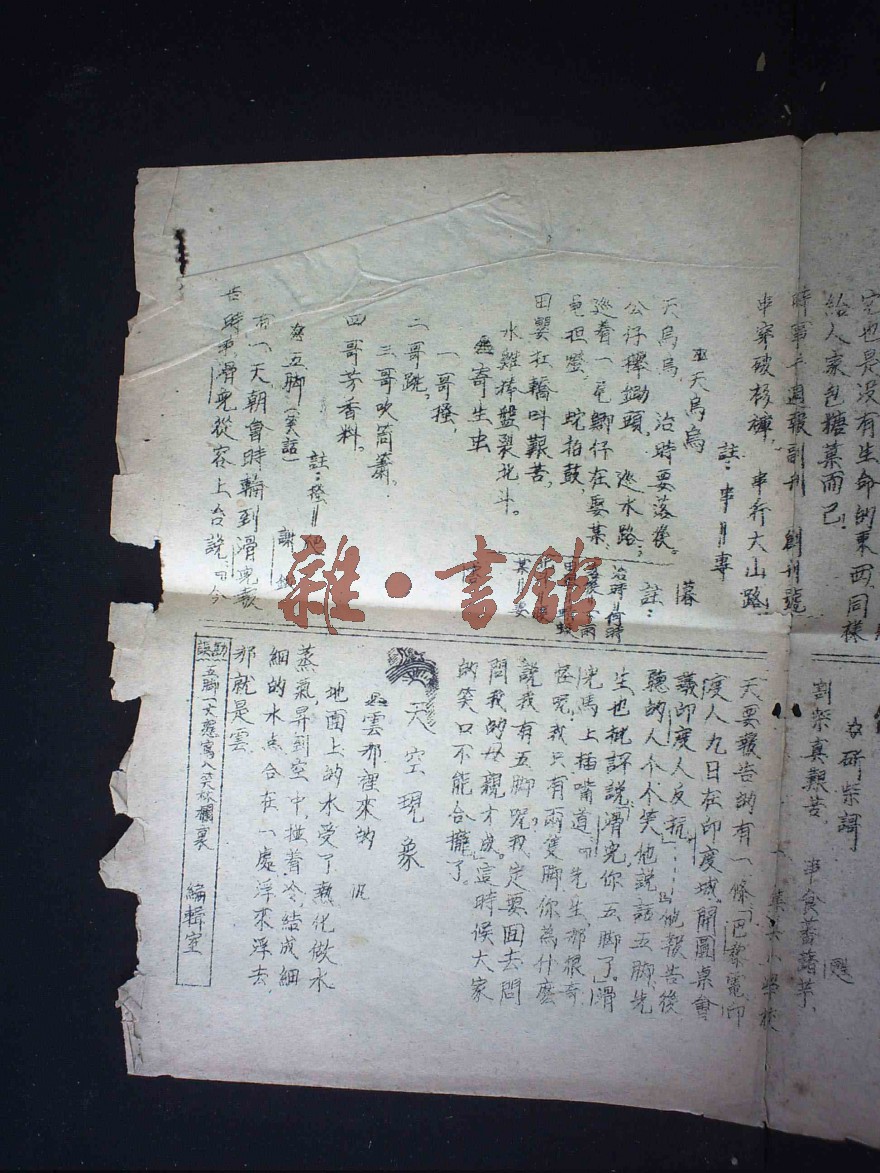 它也是没有生命的東西,同樣
給人家包糖菓而已!
時事半週報副刊 創刊號
串穿破衫褲, 串行大山路
註:串〢專
天烏烏
天烏烏, 治時要落後。
公仔櫸鋤頭, 巡水路;
巡着一尾鯽仔在娶某,
龜担燈, 蛇拍鼓,
田嬰扛轎叫艱苦,
水雞捧盤裂北斗。
註:
治時〢何時
寄生虫
一哥搔,
二哥跳,
三哥吹筒簫,
四哥芳香料。
五脚(笑話) 謝
有一天朝會時輪到滑兜報
告時事滑兜從容上台說:今
割柴真艱苦, 串食蕃藷芋,
天要報告的有一條「巴黎電印
度人九日在印度城。開圓桌會
議印度人反抗」……他報告後
聽的人个个笑,他說話五脚,先
生也批評說滑兜你五脚了。滑
兜馬上插嘴道:先生,那很奇
怪呢,我只有兩隻脚你為什麽
說我有五脚呢?我定要回去問
問我的母親才成。這時候大家
的笑口不能合攏了。
天空現象
雲那裡來的
地面上的水受了熱化做水
蒸氣,昇到空中,碰着冷,結成細
細的水点合在一處浮來浮去,
那就是雲。
勘誤 五脚一文應寫入笑林欄裏 編輯室